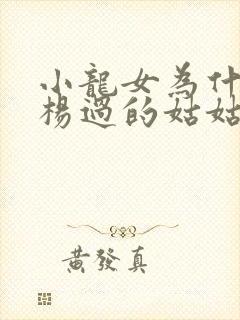 小龍女為什
楊過的姑姑
黃發真